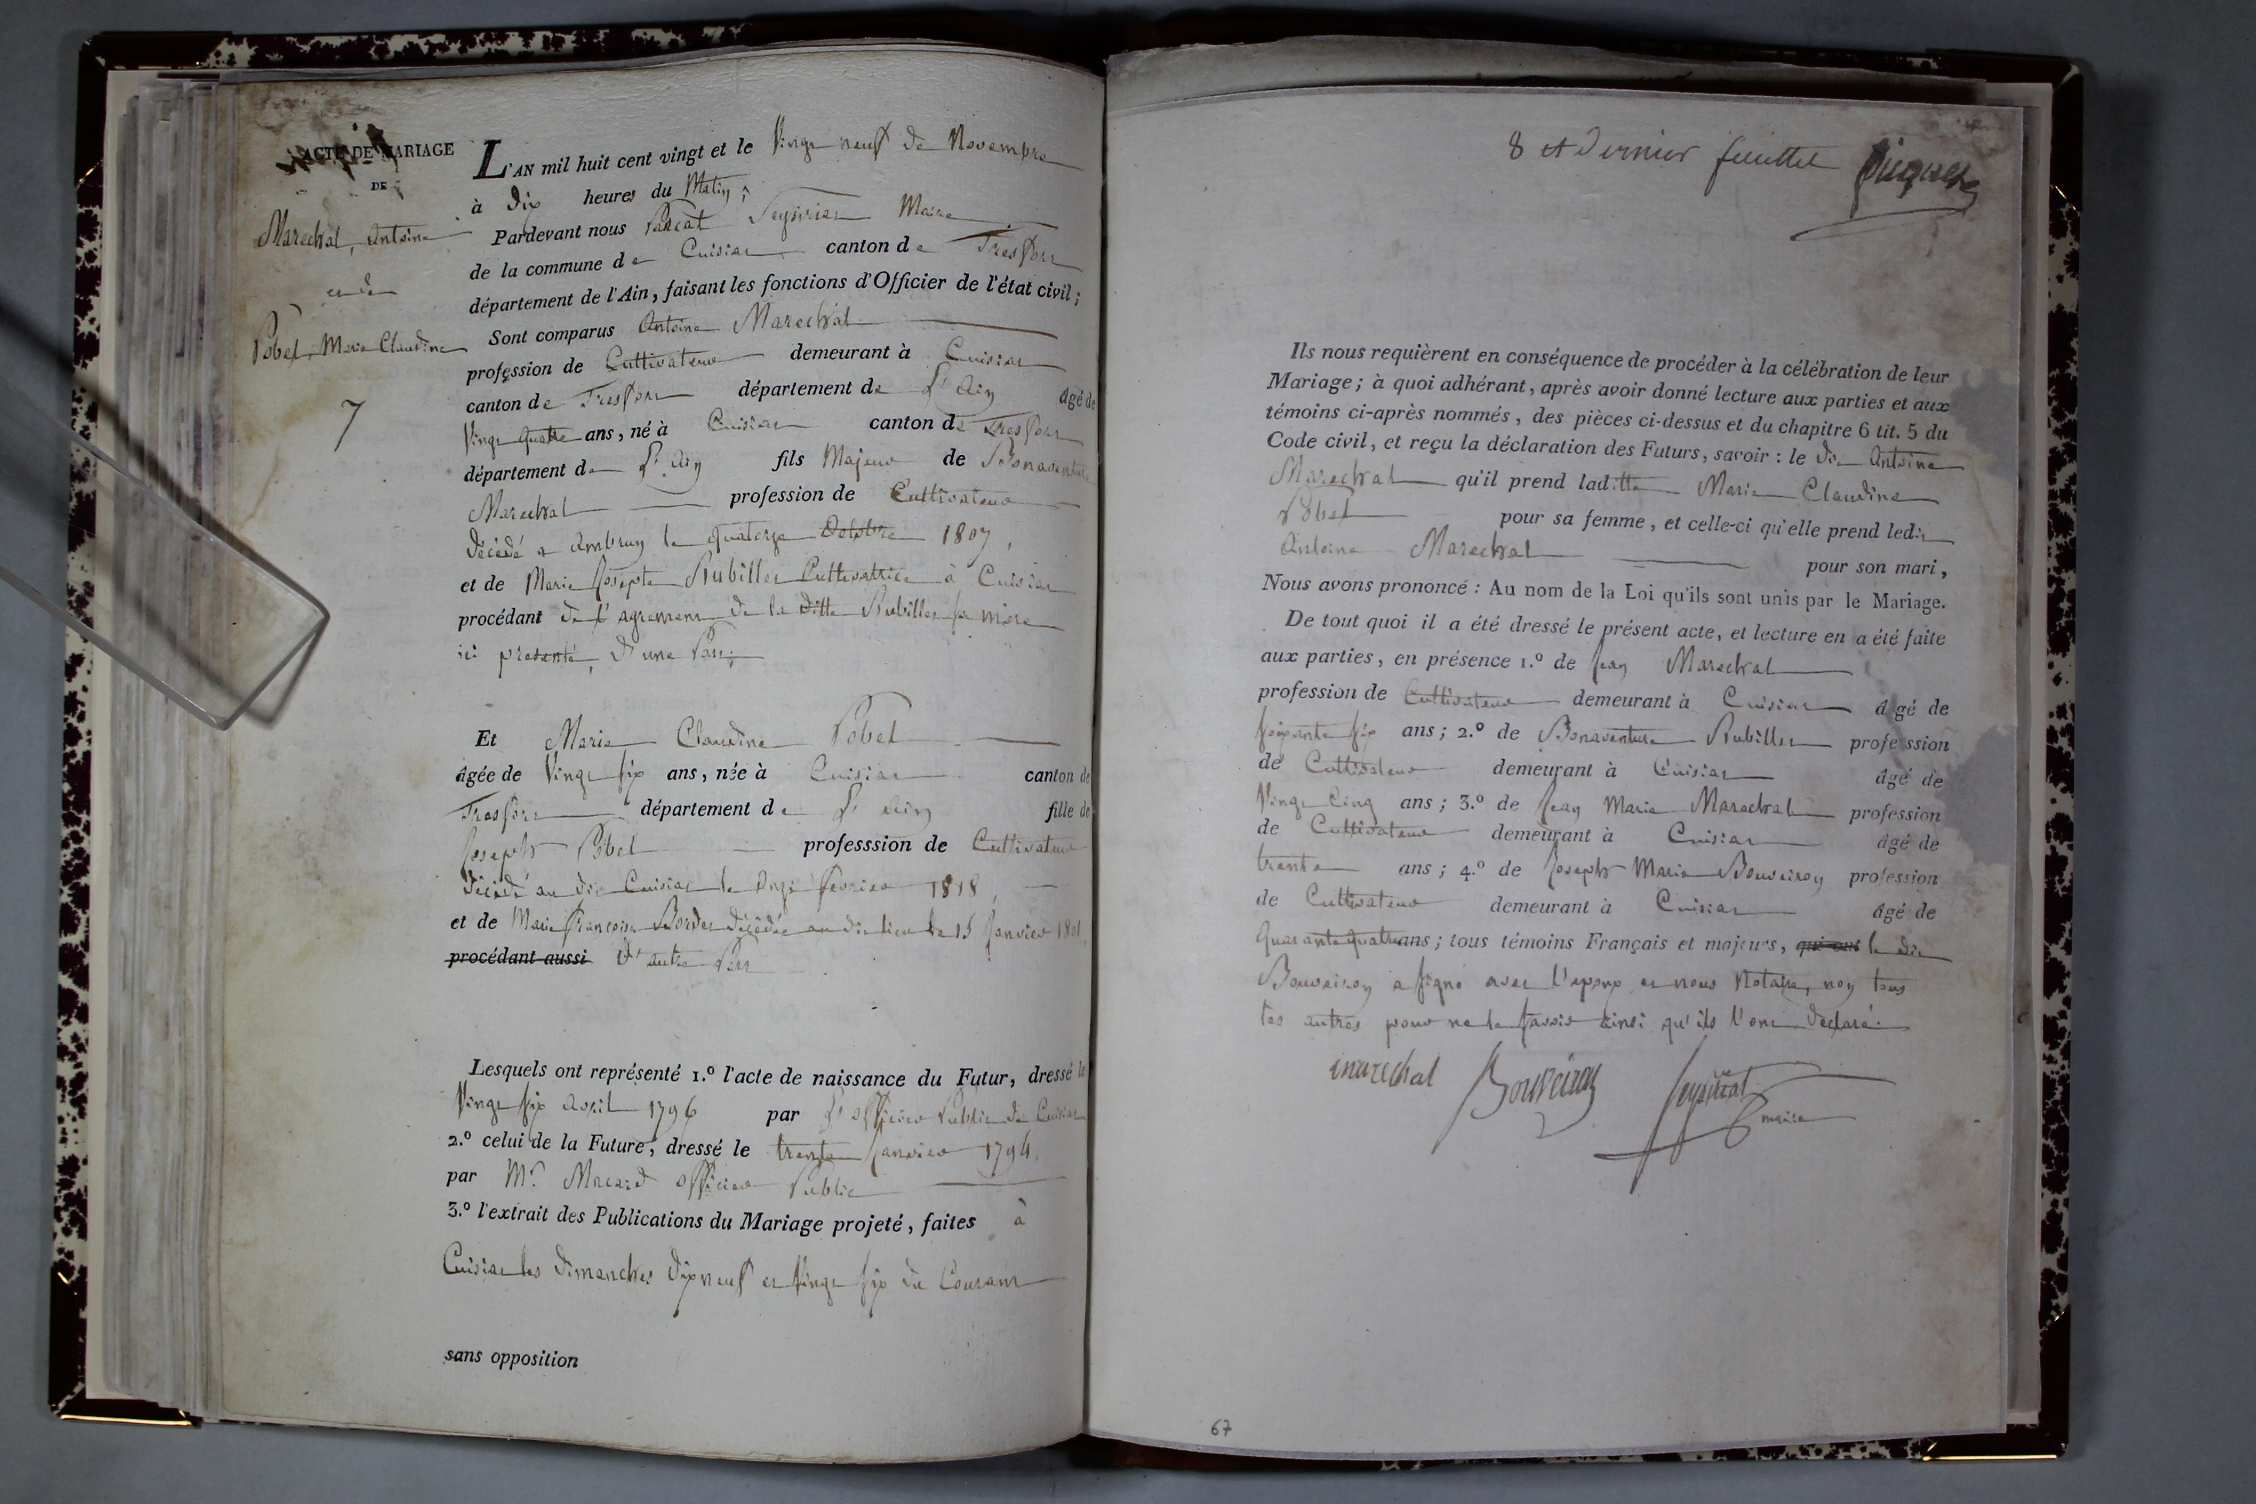 ACTE DE MARIAGE
DE
Marechal, Antoine
et de
Pobel, Marie Claudine
7
L'AN mil huit cent vingt et le Vingt neuf de Novembre
à dix heures du Matin,
Pardevant nous Pascal Seyvriat Maire
de la commune de Cuisiat canton de Treffort
département de l'Ain, faisant les fonctions d'Officier de l'état civil;
Sont comparus Antoine Marechal
profession de Cultivateur demeurant à Cuisiat
canton de Treffort département de L'Ain âgé de
Vingt quatre ans, né à Cuisiat canton de Treffort
département de L'Ain fils Majeur de Bonaventure
Marechal profession de Cultivateur
décédé a le quatorze Octobre 1807,
et de Marie Josepte Rubillet Cultivatrice à Cuisiat
procédant de l'agrement de la ditte Rubillet sa mère
ici présente, d'une Part;
Et Marie Claudine Pobel
âgée de Vingt six ans, née à Cuisiat canton de
Treffort département de L'Ain fille de
Joseph Pobel professsion de Cultivateur
décédé au dit Cuisiat le Onze fevrier 1818,
et de Marie françoise décédée au dit lieu le 15 Janvier 1801,
procédant aussi d'autre Part
Lesquels ont représenté 1.º l'acte de naissance du Futur, dressé le
Vingt six Avril 1796 par L'officier Public de Cuisiat
2.º celui de la Future, dressé le trente Janvier 1794,
par Mr. officier Public
3.º l'extrait des Publications du Mariage projeté, faites à
Cuisiat les dimanches dixneuf et Vingt six du Courant
sans opposition
8 et dernier feuillet
Ils nous requièrent en conséquence de procéder à la célébration de leur
Mariage; à quoi adhérant, après avoir donné lecture aux parties et aux
témoins ci-après nommés, des pièces ci-dessus et du chapitre 6 tit. 5 du
Code civil, et reçu la déclaration des Futurs, savoir : le dit Antoine
Marechal qu'il prend laditte Marie Claudine
Pobel pour sa femme, et celle-ci qu'elle prend ledit
Antoine Marechal pour son mari,
Nous avons prononcé : Au nom de la Loi qu'ils sont unis par le Mariage.
De tout quoi il a été dressé le présent acte, et lecture en a été faite
aux parties, en présence 1.º de Jean Marechal
profession de Cultivateur demeurant à Cuisiat âgé de
soixante six ans; 2.º de Bonaventure Rubillet profession
de Cultivateur demeurant à Cuisiat âgé de
Vingt Cinq ans; 3.º de Jean Marie Marechal profession
de Cultivateur demeurant à Cuisiat âgé de
trente ans; 4.º de Joseph Marie Bouveiron profession
de Cultivateur demeurant à Cuisiat âgé de
quarante quatre ans; tous témoins Français et majeurs, qui ont le dit
Bouveiron a signé avec l'epoux et nous Notaire, non tous
les autres pour ne le savoir ainsi qu'ils l'ont déclaré.
marechal Bouveiron Seyvriat
maire
67